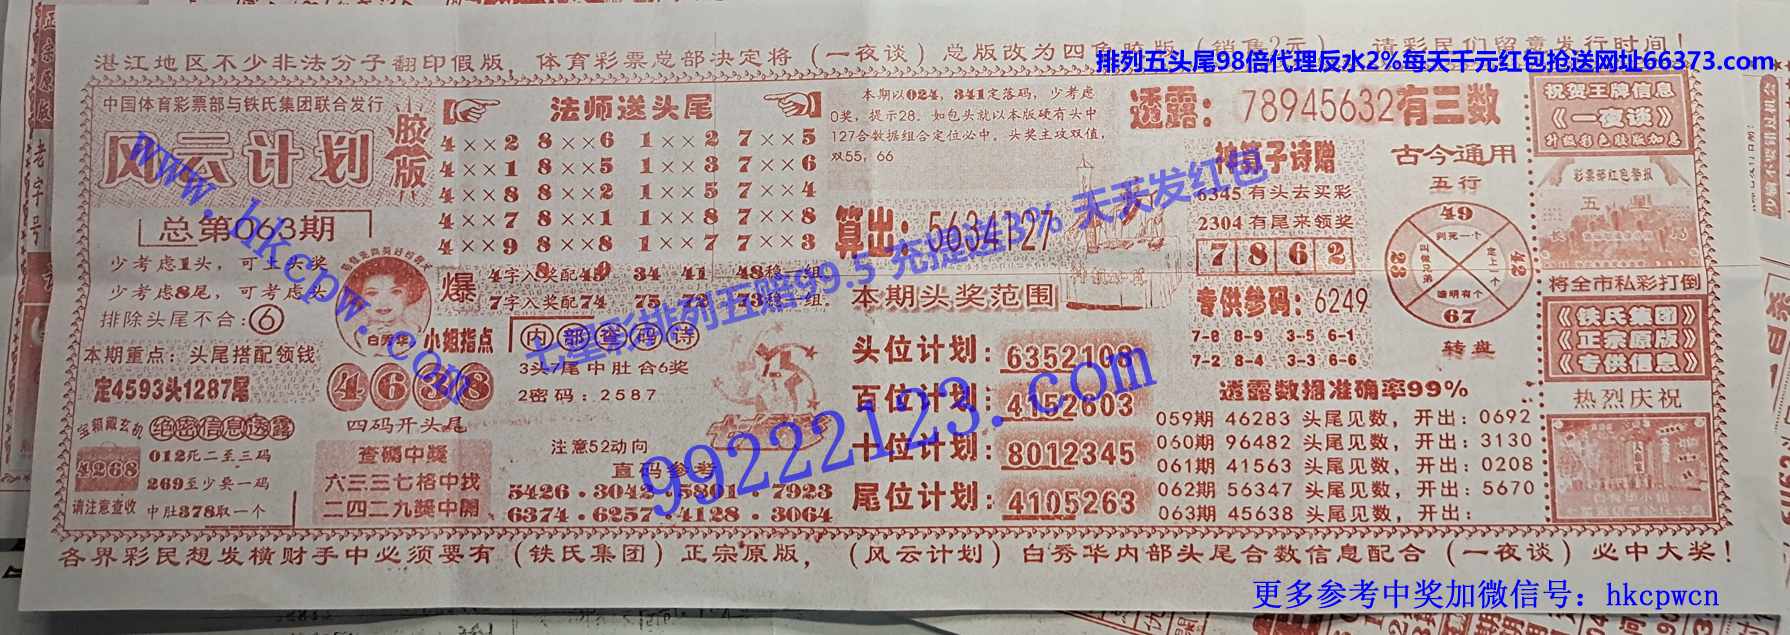 湛江地区不少非法分子翻印假版，体育彩票总部决定将（一夜谈）总版改为四色胶版（销售2元）  请彩民们留意发行时间！
排列五头尾98倍代理反水2%每天千元红包抢送网址66373.com
中国体育彩票部与铁氏集团联合发行
风云计划
胶版
总第063期
少考虑1头，可主头奖
少考虑8尾，可考虑头
排除头尾不合：6
本期重点：头尾搭配领钱
定4593头1287尾
宝箱藏玄机
绝密信息透露
4268
012死二至三码
269至少要一码
请注意查收
中肚378取一个
法师送头尾
4××2 8××6 1××2 7××5
4××1 8××5 1××3 7××6
4××8 8××2 1××5 7××4
4××7 8××1 1××8 7××8
4××9 8××8 1××7 7××3
爆
4字入奖配 34 41 48稳一组
7字入奖配74 75 72 73稳一组.
白秀华
小姐指点
4638
四码开头尾
内部查码诗
3头7尾中肚合6奖
2密码：2587
查码中奖
六三三七格中找
二四二九奖中开
注意52动向
直码参考
5426.3042.5801.7923
6374.6257.4128.3064
本期以024，341定落码，少考虑
0奖，提示28.如包头就以本版硬有头中
127合数据组合定位必中，头奖主攻双值，
双55，66
算出：5634127
本期头奖范围
头位计划：6352108
百位计划：4152603
十位计划：8012345
尾位计划：4105263
透露：78945632有三数
神算子诗赠
6345有头去买彩
2304有尾来领奖
7862
专供参码：6249
7-8 8-9 3-5 6-1
7-2 8-4 3-3 6-6
古今通用
五行
49
23
42
67
转盘
透露数据准确率99%
059期 46283 头尾见数，开出：0692
060期 96482 头尾见数，开出：3130
061期 41563 头尾见数，开出：0208
062期 56347 头尾见数，开出：5670
063期 45638 头尾见数，开出：
祝贺王牌信息
《一夜谈》
升级彩色胶版知悉
彩票部红色警报
将全市私彩打倒
《铁氏集团》
《正宗原版》
《专供信息》
热烈庆祝
各界彩民想发横财手中必须要有（铁氏集团）正宗原版，（风云计划）白秀华内部头尾合数信息配合（一夜谈）必中大奖！
www.hkcpw.com
七星彩排列五赔99.5 充提送3% 天天发红包
99222123.com
更多参考中奖加微信号：hkcpwcn